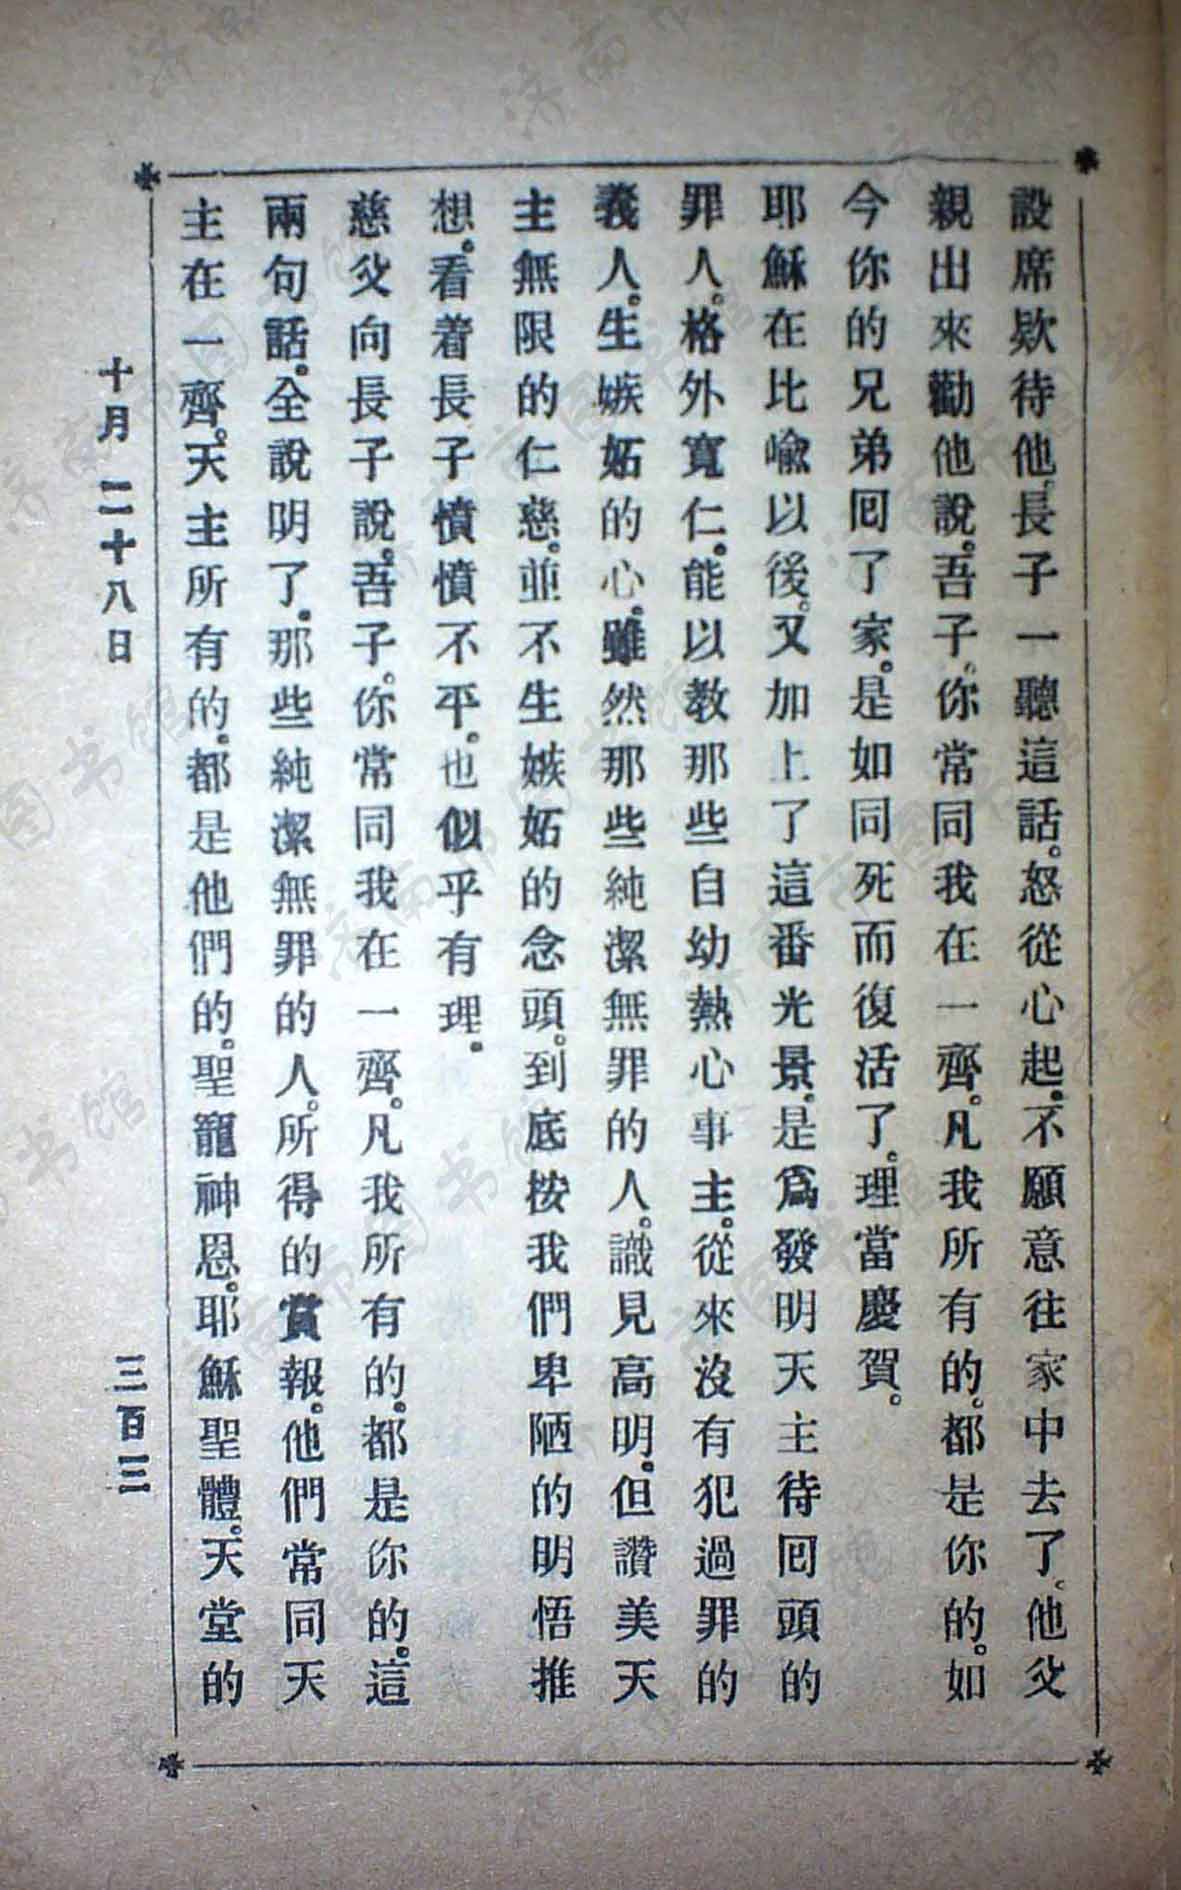 設席欵待他。長子一聽這話。怒從心起。不願意往家中去了。他父
親出來勸他說。吾子。你常同我在一齊。凡我所有的。都是你的。如
今你的兄弟囘了家。是如同死而復活了。理當慶賀。
耶穌在比喩以後。又加上了這番光景。是爲發明天主待囘頭的
罪人。格外寬仁。能以教那些自幼熱心事主。從來沒有犯過罪的
義人。生嫉妬的心。雖然那些純潔無罪的人。識見高明。但讚美天
主無限的仁慈。並不生嫉妬的念頭。到底按我們卑陋的明悟推
想。看着長子憤憤不平。也似乎有理。
慈父向長子說。吾子。你常同我在一齊。凡我所有的。都是你的。這
兩句話。全說明了。那些純潔無罪的人。所得的賞報。他們常同天
主在一齊。天主所有的。都是他們的。聖寵神恩。耶穌聖體。天堂的
十月二十八日
三百三
济南市图书馆